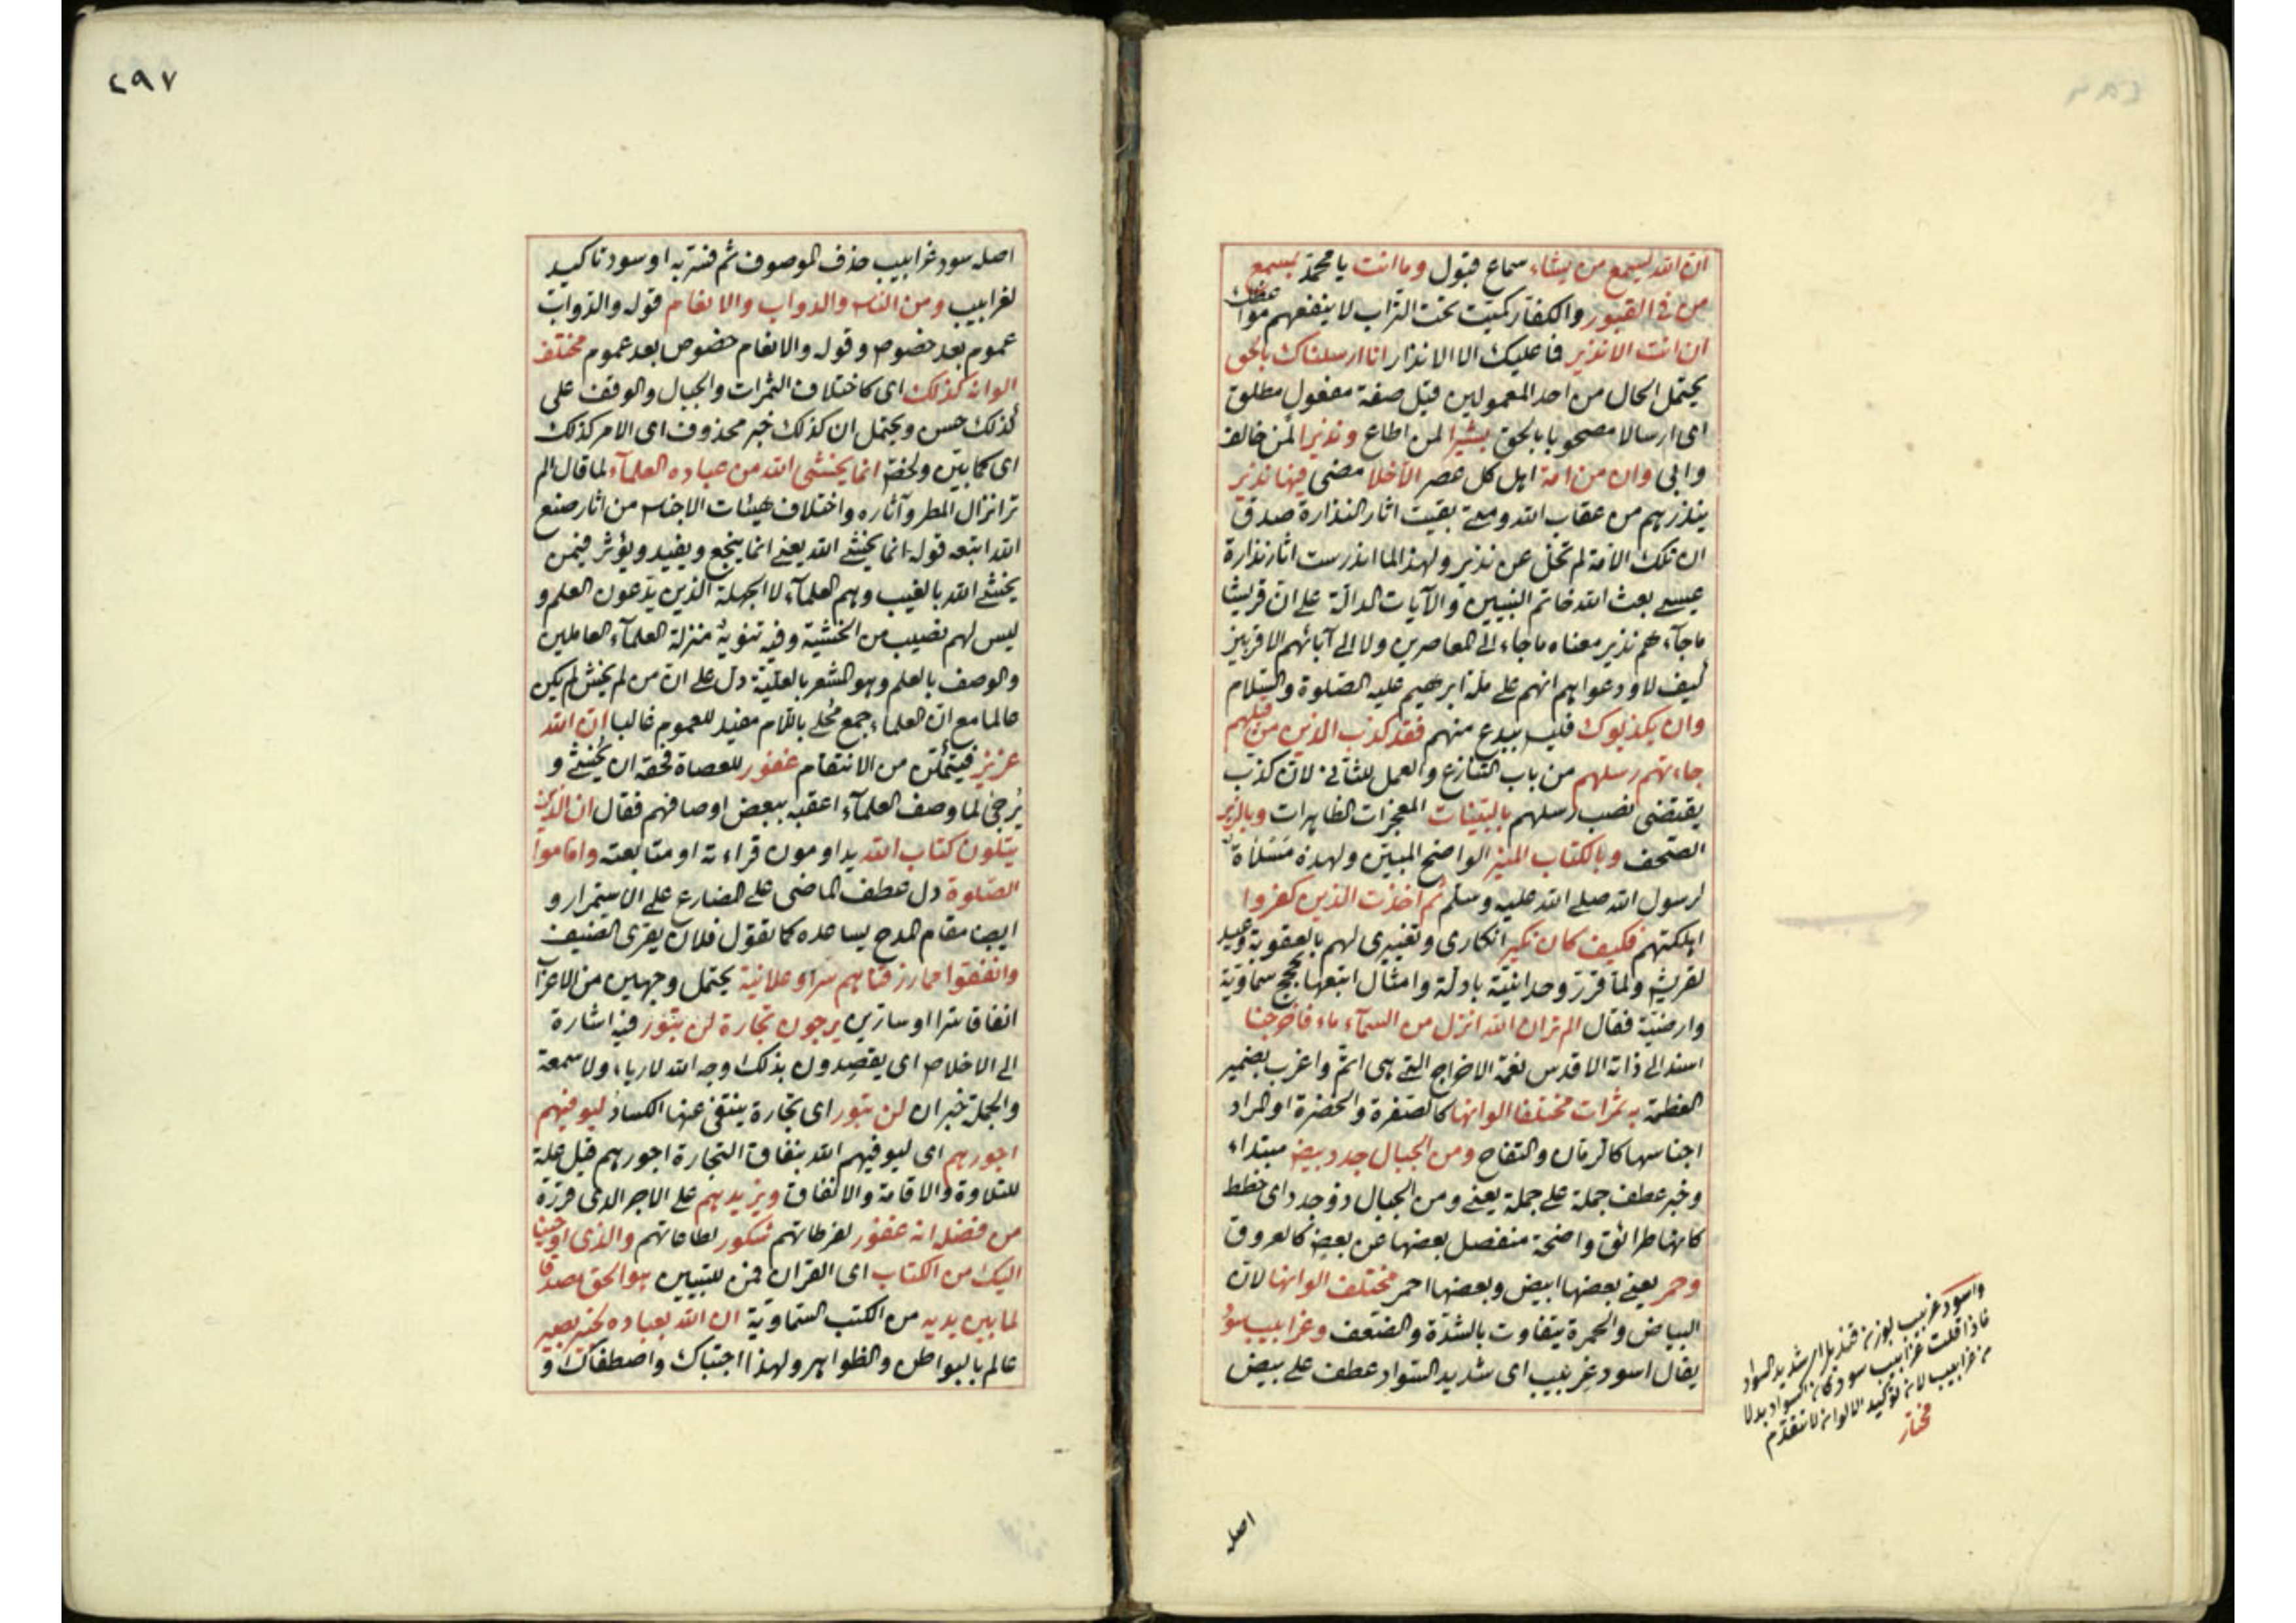 ان الله يسمع من يشاء سماع قبول وما انت يا محمد بمسمع
من فى القبور والكفار كميت تحت التراب لا ينفعهم مواعظك
ان انت الا نذير فما عليك الا الانذار انا ارسلناك بالحق
يحتمل الحال من احد المعمولين قيل صفة مفعول مطلق
اى ارسالا مصحوبا بالحق بشيرا لمن اطاع ونذيرا لمن خالف
وابى وان من امة اهل كل عصر الا خلا مضى فيها نذير
ينذرهم من عقاب الله ومتى بقيت اثار النذارة صدق
ان تلك الامة لم تخل عن نذير ولهذا لما اندرست اثار نذارة
عيسى بعث الله خاتم النبيين والآيات الدالة على ان قريشا
ما جآءهم نذير معناه ما جاء الى المعاصرين ولا الى آبائهم الاقربين
كيف لا ودعواهم انهم على ملة ابرهيم عليه الصلوة والسلام
وان يكذبوك فليس ببدع منهم فقد كذب الذين من قبلهم
جاءتهم رسلهم من باب التنازع والعمل للثانى لان كذب
يقتضى نصب رسلهم بالبينات المعجزات الظاهرات وبالزبر
الصحف وبالكتاب المنير الواضح المبين ولهذه مسلاة
لرسول الله صلى الله عليه وسلم ثم اخذت الذين كفروا
اهلكتهم فكيف كان نكير انكارى وتغييرى لهم بالعقوبة وعيد
لقريش ولما قرر وحدانيته بادلة وامثال اتبعها بحجج سماوية
وارضية فقال الم تر ان الله انزل من السمآء ماء فاخرجنا
اسند الى ذاته الاقدس نعمة الاخراج التى هى اتم واغرب بضمير
العظمة به ثمرات مختلفا الوانها كالصفرة والخضرة او المراد
اجناسها كالرمان والتفاح ومن الجبال جدد بيض مبتداء
وخبر عطف جملة على جملة يعنى ومن الجبال ذو جدد اى خطط
كانها طرائق واضحة منفصل بعضها عن بعض كالعروق
وحمر يعنى بعضها ابيض وبعضها احمر مختلف الوانها لان
البياض والحمرة يتفاوت بالشدة والضعف وغرابيب سود
يقال اسود غربيب اى شديد السواد عطف على بيض
واسود غربيب بوزن قنديل اى شديد السواد
فاذا قلت غرابيب سود كان السواد بدلا
من غرابيب لان توكيد الالوان لا يتقدم
مختار
اصله
٢٩٧
اصله سود غرابيب حذف الموصوف ثم فسر به او سود تاكيد
لغرابيب ومن الناس والدواب والانعام قوله والدواب
عموم بعد خصوص وقوله والانعام خصوص بعد عموم مختلف
الوانه كذلك اى كاختلاف الثمرات والجبال والوقف على
كذلك حسن ويحتمل ان كذلك خبر محذوف اى الامر كذلك
اى كما بين ولخص انما يخشى الله من عباده العلمآء لما قال الم
تر انزال المطر وآثاره واختلاف هيئات الاجناس من اثار صنع
الله اتبعه قوله انما يخشى الله يعنى انما ينجع ويفيد ويؤثر فيمن
يخشى الله بالغيب وهم العلمآء لا الجهلة الذين يدعون العلم و
ليس لهم نصيب من الخشية وفيه تنويه منزلة العلمآء العاملين
والوصف بالعلم وهو المشعر بالعلية دل على ان من لم يخش لم يكن
عالما مع ان العلماء جمع محلى باللام مفيد للعموم غالبا ان الله
عزيز فيتمكن من الانتقام غفور للعصاة فحقه ان يخشى و
يرجى لما وصف العلمآء اعقبه ببعض اوصافهم فقال ان الذين
يتلون كتاب الله يداومون قراءته او متابعته واقاموا
الصلوة دل عطف الماضى على المضارع على الاستمرار و
ايضا مقام المدح يساعده كما تقول فلان يقرى الضيف
وانفقوا مما رزقناهم سرا وعلانية يحتمل وجهين من الاعراب
انفاقا سرا او سارين يرجون تجارة لن تبور فيه اشارة
الى الاخلاص اى يقصدون بذلك وجه الله لا رياء ولا سمعة
والجملة خبر ان لن تبور اى تجارة ينتفى عنها الكساد ليوفيهم
اجورهم اى ليوفيهم الله بنفاق التجارة اجورهم قبل علة
للتلاوة والاقامة والانفاق ويزيدهم على الاجر الذى قرره
من فضله انه غفور لفرطاتهم شكور لطاعاتهم والذى اوحينا
اليك من الكتاب اى القرآن فمن للتبيين هو الحق مصدقا
لما بين يديه من الكتب السماوية ان الله بعباده لخبير بصير
عالم بالبواطن والظواهر ولهذا اجتباك واصطفاك و